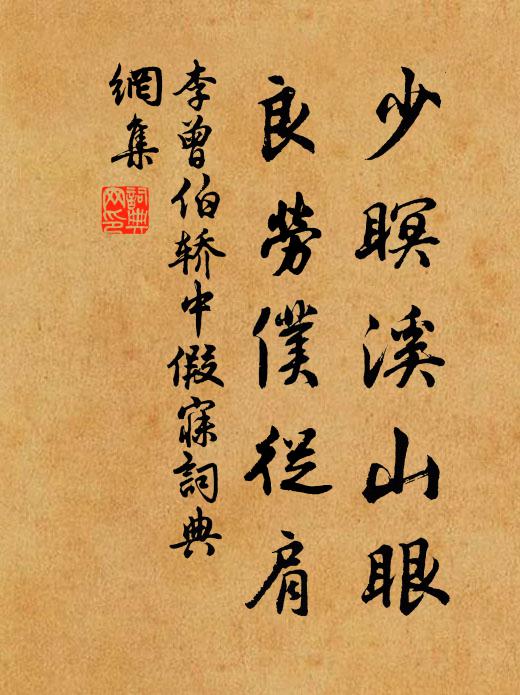 少瞑溪山眼
良勞僕從肩
李曾伯轿中假寐詞典
網集
詞典
网印